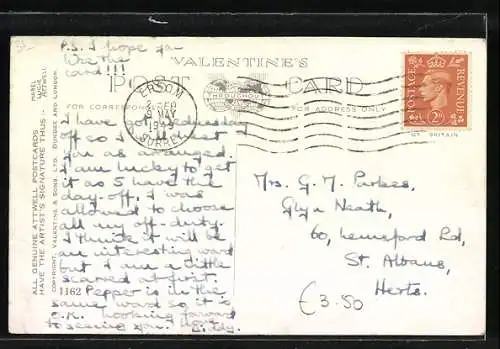 P.S. I hope you
like the
card!!!
VALENTINE'S
POST CARD
FOR CORRESPONDENCE
FOR ADDRESS ONLY
EPSOM
SURREY
POSTAGE REVENUE
2D
GT. BRITAIN
MABEL
LUCIE
ATTWELL
ALL GENUINE ATTWELL POSTCARDS
HAVE THE ARTIST'S SIGNATURE THUS :-
COPYRIGHT, VALENTINE & SONS, LTD. DUNDEE AND LONDON.
I have got Wednesday
off so I will meet
you as arranged.
I am lucky to get
it as 5 have the
day-off. I was
allowed to choose
all my off-duty.
I think it will be
an interesting ward
but I am a little
scared at first.
1162 Pepper is in the
same ward so it is
O.K. Looking forward
to seeing you. Love
Mrs. G. M. Parkes,
Glyn Neath,
60, Lemsford Rd,
St. Albans,
Herts.
£3.50